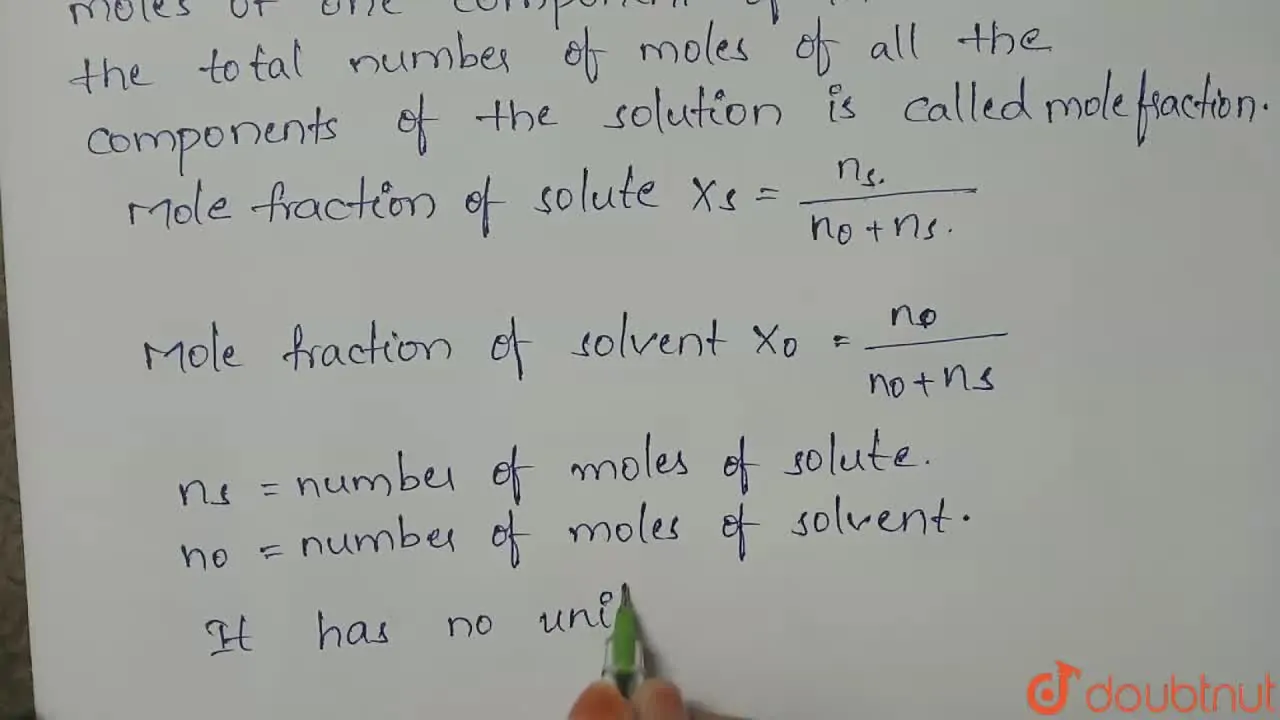 moles of one component
the total number of moles of all the
components of the solution is called mole fraction.
Mole fraction of solute Xs = ns. / n0 + ns.
Mole fraction of solvent X0 = n0 / n0 + ns
ns = number of moles of solute.
n0 = number of moles of solvent.
It has no uni
doubtnut